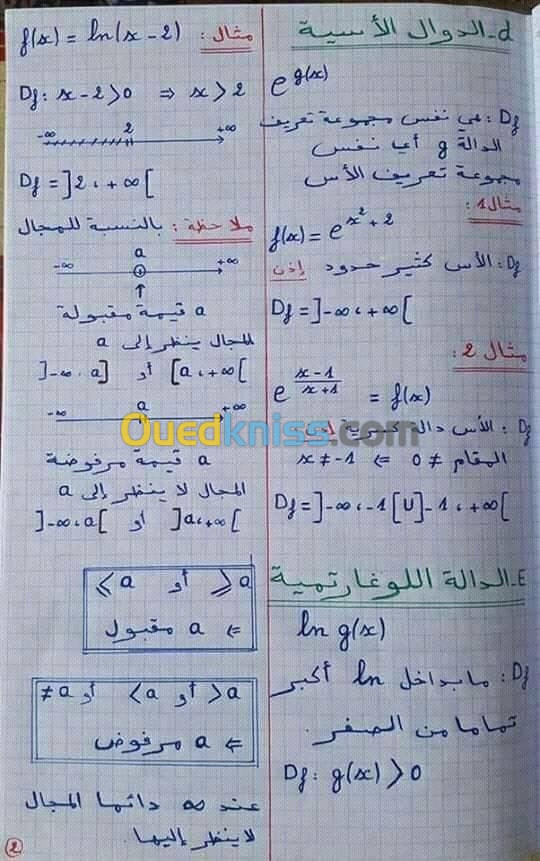 d- الدوال الأسية
e^{g(x)}
Df : هي نفس مجموعة تعريف
الدالة g أي نفس
مجموعة تعريف الأس
مثال 1 :
f(x) = e^{x²+2}
Df : الأس كثير حدود إذن
Df = ]-∞ ، +∞[
مثال 2 :
e^{\frac{x-1}{x+1}} = f(x)
Df : الأس دالة كسرية
المقام ≠ 0 ⇐ x ≠ -1
Df = ]-∞ ، -1[ U ]-1 ، +∞[
E- الدالة اللوغارتمية
ln g(x)
Df : ما بداخل ln أكبر
تماما من الصفر.
Df : g(x) > 0
مثال : f(x) = ln(x-2)
Df : x-2 > 0 ⇒ x > 2
-∞ 2 +∞
Df = ]2 ، +∞[
ملاحظة : بالنسبة للمجال
-∞ a +∞
a قيمة مقبولة
المجال ينظر إلى a
[a ، +∞[ أو ]-∞ ، a]
-∞ a +∞
a قيمة مرفوضة
المجال لا ينظر إلى a
]a ، +∞[ أو ]-∞ ، a[
≥ a أو ≤ a
⇐ a مقبول
> a أو < a أو ≠ a
⇐ a مرفوض
عند ∞ دائما المجال
لا ينظر إليها.
2
Ouedkniss.com